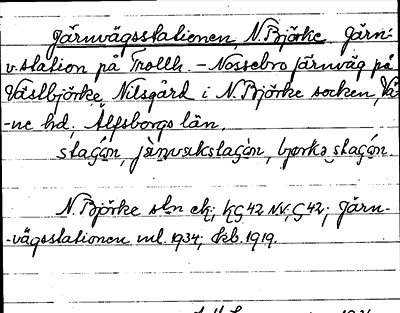 Järnvägsstationen, N. Björke. Järn-
v.station på Trollh. - Nossebro järnväg på
Västbjörke Nilsgård i N. Björke socken, Vä-
-ne hd, Älfsborgs län.
stagón, jä̀rnvækstagón, bjørkə stagón.
N. Björke stn ek; kG42 NV, G42; Järn-
-vägsstationen ml. 1934; dkb. 1919.